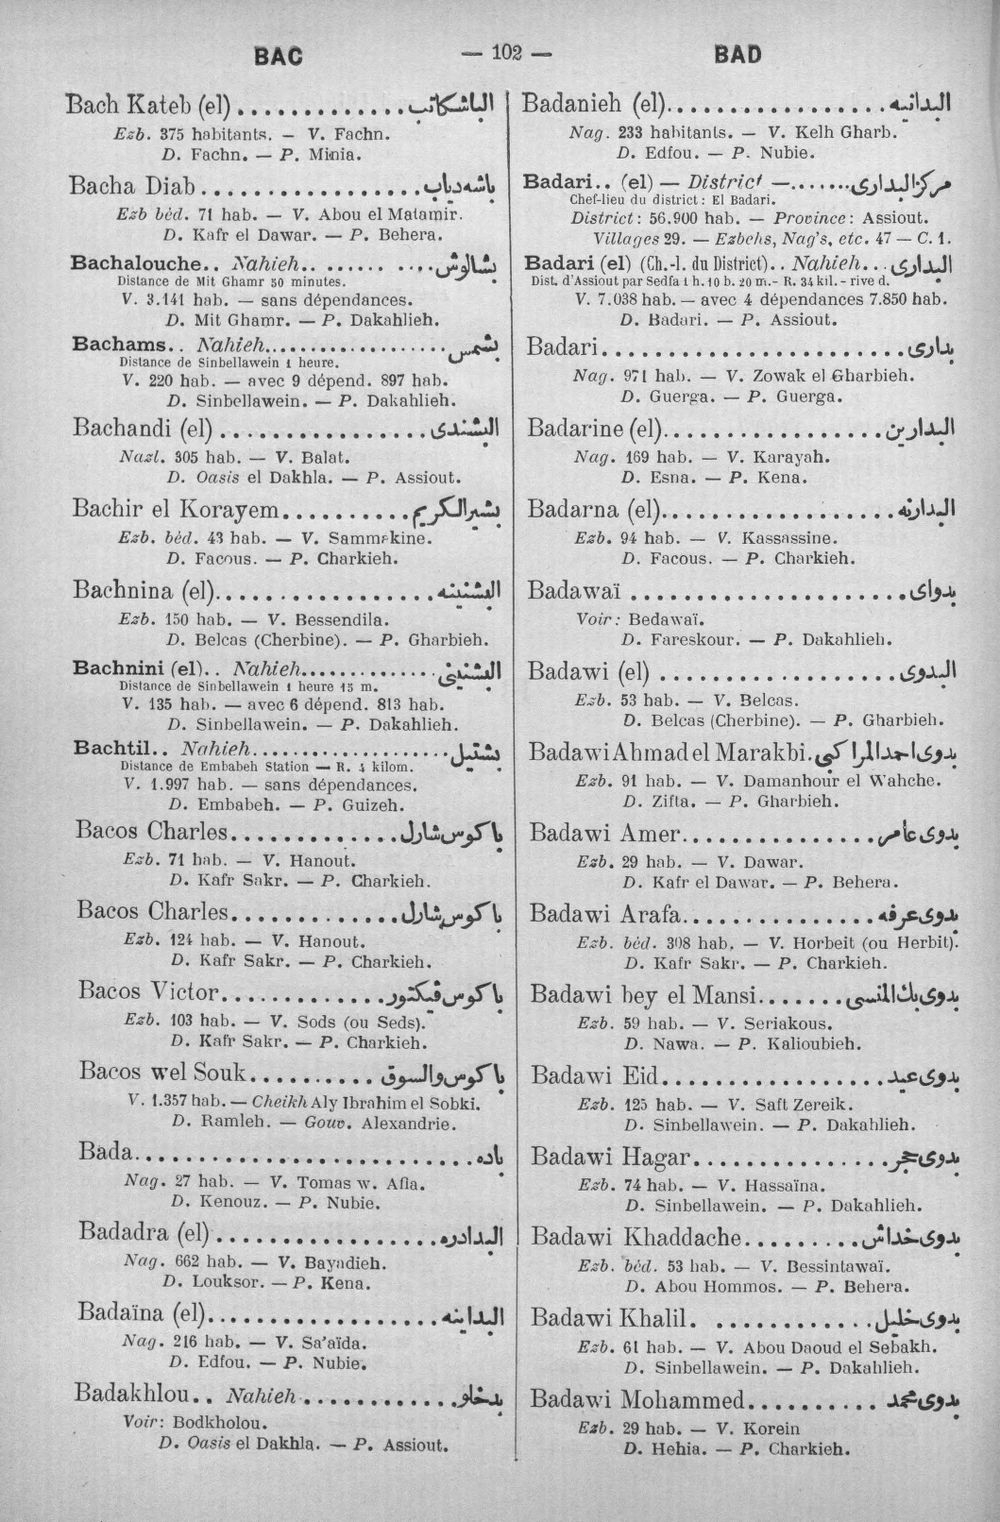 BAC — 102 — BAD
Bach Kateb (el) ............. الباشكاتب
Ezb. 375 habitants. — V. Fachn.
D. Fachn. — P. Minia.
Bacha Diab ................. باشه دياب
Ezb béd. 71 hab. — V. Abou el Matamir.
D. Kafr el Dawar. — P. Behera.
Bachalouche.. Nahieh.......... بشالوش
Distance de Mit Ghamr 50 minutes.
V. 3.141 hab. — sans dépendances.
D. Mit Ghamr. — P. Dakahlieh.
Bachams.. Nahieh.................. بشمس
Distance de Sinbellawein 1 heure.
V. 220 hab. — avec 9 dépend. 897 hab.
D. Sinbellawein. — P. Dakahlieh.
Bachandi (el) ................ البشندى
Nazl. 305 hab. — V. Balat.
D. Oasis el Dakhla. — P. Assiout.
Bachir el Korayem.......... بشير الكريم
Ezb. béd. 43 hab. — V. Sammakine.
D. Facous. — P. Charkieh.
Bachnina (el)................. البشنينه
Ezb. 150 hab. — V. Bessendila.
D. Belcas (Cherbine). — P. Gharbieh.
Bachnini (el).. Nahieh.............. البشنينى
Distance de Sinbellawein 1 heure 15 m.
V. 135 hab. — avec 6 dépend. 813 hab.
D. Sinbellawein. — P. Dakahlieh.
Bachtil.. Nahieh.................... بشتيل
Distance de Embabeh Station — R. 4 kilom.
V. 1.997 hab. — sans dépendances.
D. Embabeh. — P. Guizeh.
Bacos Charles............. باكوس شارل
Ezb. 71 hab. — V. Hanout.
D. Kafr Sakr. — P. Charkieh.
Bacos Charles............. باكوس شارل
Ezb. 124 hab. — V. Hanout.
D. Kafr Sakr. — P. Charkieh.
Bacos Victor............. باكوس فيكتور
Ezb. 103 hab. — V. Sods (ou Seds).
D. Kafr Sakr. — P. Charkieh.
Bacos wel Souk.......... باكوس والسوق
V. 1.357 hab. — Cheikh Aly Ibrahim el Sobki.
D. Ramleh. — Gouv. Alexandrie.
Bada.......................... باده
Nag. 27 hab. — V. Tomas w. Afia.
D. Kenouz. — P. Nubie.
Badadra (el).................. البدادره
Nag. 662 hab. — V. Bayadieh.
D. Louksor. — P. Kena.
Badaïna (el).................. البداينه
Nag. 216 hab. — V. Sa'aïda.
D. Edfou. — P. Nubie.
Badakhlou.. Nahieh............ بدخلو
Voir: Bodkholou.
D. Oasis el Dakhla. — P. Assiout.
Badanieh (el)................. البدانيه
Nag. 233 habitants. — V. Kelh Gharb.
D. Edfou. — P. Nubie.
Badari.. (el) — District —....... مركز البدارى
Chef-lieu du district: El Badari.
District: 56.900 hab. — Province: Assiout.
Villages 29. — Ezbehs, Nag's, etc. 47 — C. 1.
Badari (el) (Ch.-l. du District).. Nahieh... البدارى
Dist. d'Assiout par Sedfa 1 h. 10 b. 20 m.- R. 34 kil. - rive d.
V. 7.038 hab. — avec 4 dépendances 7.850 hab.
D. Badari. — P. Assiout.
Badari........................ بدارى
Nag. 971 hab. — V. Zowak el Gharbieh.
D. Guerga. — P. Guerga.
Badarine (el)................. البدارين
Nag. 169 hab. — V. Karayah.
D. Esna. — P. Kena.
Badarna (el).................. البدارنه
Ezb. 94 hab. — V. Kassassine.
D. Facous. — P. Charkieh.
Badawaï ...................... بدواى
Voir: Bedawaï.
D. Fareskour. — P. Dakahlieh.
Badawi (el) ................... البدوى
Ezb. 53 hab. — V. Belcas.
D. Belcas (Cherbine). — P. Gharbieh.
Badawi Ahmad el Marakbi. بدوى احمد المراكبى
Ezb. 91 hab. — V. Damanhour el Wahche.
D. Zifta. — P. Gharbieh.
Badawi Amer............... بدوى عامر
Ezb. 29 hab. — V. Dawar.
D. Kafr el Dawar. — P. Behera.
Badawi Arafa............... بدوى عرفه
Ezb. béd. 308 hab. — V. Horbeit (ou Herbit).
D. Kafr Sakr. — P. Charkieh.
Badawi bey el Mansi....... بدوى بك المنسى
Ezb. 59 hab. — V. Seriakous.
D. Nawa. — P. Kalioubieh.
Badawi Eid................. بدوى عيد
Ezb. 125 hab. — V. Saft Zereik.
D. Sinbellawein. — P. Dakahlieh.
Badawi Hagar............... بدوى حجر
Ezb. 74 hab. — V. Hassaïna.
D. Sinbellawein. — P. Dakahlieh.
Badawi Khaddache......... بدوى خداش
Ezb. béd. 53 hab. — V. Bessintawaï.
D. Abou Hommos. — P. Behera.
Badawi Khalil. ............ بدوى خليل
Ezb. 61 hab. — V. Abou Daoud el Sebakh.
D. Sinbellawein. — P. Dakahlieh.
Badawi Mohammed.......... بدوى محمد
Ezb. 29 hab. — V. Korein
D. Hehia. — P. Charkieh.